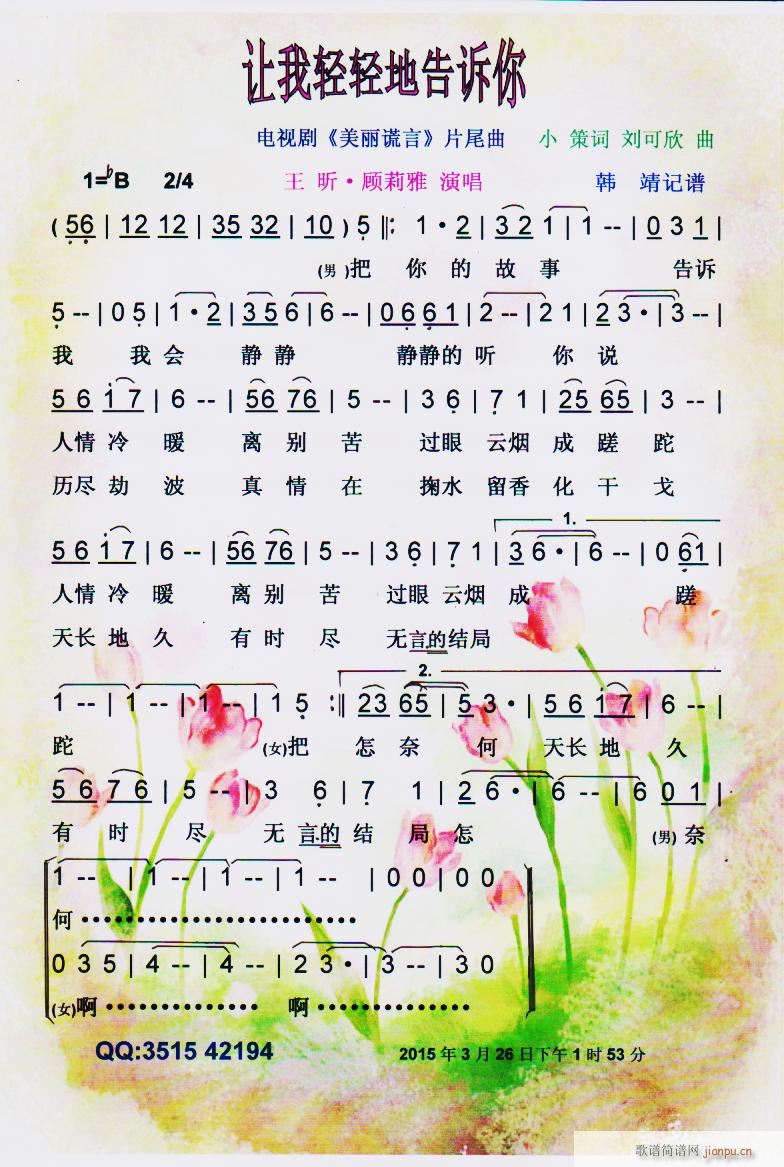 让我轻轻地告诉你
电视剧《美丽谎言》片尾曲 小 策词 刘可欣 曲
1=♭B 2/4 王 昕·顾莉雅 演唱 韩 靖记谱
( 56 | 12 12 | 35 32 | 10 ) 5 ‖: 1 · 2 | 32 1 | 1 -- | 0 3 1 |
(男)把 你 的 故 事 告诉
5 -- | 0 5 | 1 · 2 | 35 6 | 6 -- | 0 6 6 1 | 2 -- | 2 1 | 2 3 · | 3 -- |
我 我 会 静 静 静静的 听 你 说
5 6 1 7 | 6 -- | 56 76 | 5 -- | 3 6 | 7 1 | 25 65 | 3 -- |
人情 冷 暖 离 别 苦 过眼 云烟 成 蹉 跎
历尽 劫 波 真 情 在 掬水 留香 化 干 戈
1.
5 6 1 7 | 6 -- | 56 76 | 5 -- | 3 6 | 7 1 | 3 6 · | 6 -- | 0 61 |
人情 冷 暖 离 别 苦 过眼 云烟 成 蹉
天长 地 久 有 时 尽 无言的结局
2.
1 -- | 1 -- | 1 -- | 1 5 :‖ 23 65 | 5 3 · | 5 6 1 7 | 6 -- |
跎 (女)把 怎 奈 何 天长 地 久
5 6 7 6 | 5 -- | 3 6 | 7 1 | 2 6 · | 6 -- | 6 0 1 |
有 时 尽 无 言的 结 局 怎 (男)奈
1 -- | 1 -- | 1 -- | 1 -- | 0 0 | 0 0
何 ··················
0 3 5 | 4 -- | 4 -- | 2 3 · | 3 -- | 3 0
(女)啊 ············ 啊 ············
QQ:3515 42194 2015 年 3 月 26 日下午 1 时 53 分
歌谱简谱网 jianpu.cn